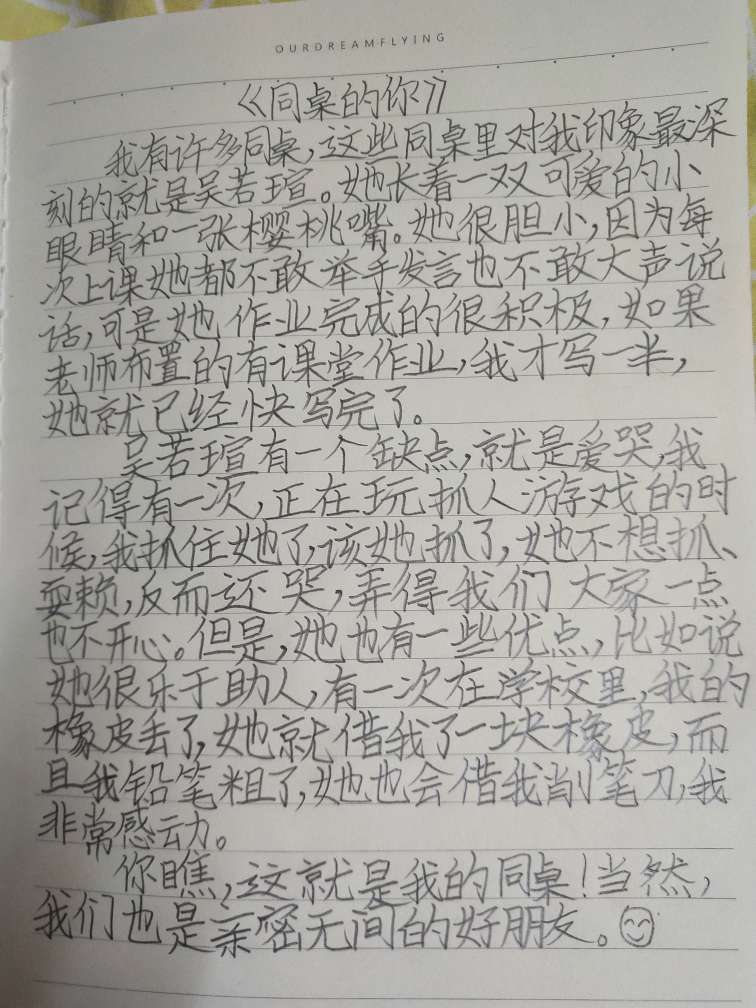 OURDREAMFLYING
《同桌的你》
我有许多同桌,这些同桌里对我印象最深
刻的就是吴若瑄。她长着一双可爱的小
眼睛和一张樱桃嘴。她很胆小,因为每
次上课她都不敢举手发言也不敢大声说
话,可是她作业完成的很积极,如果
老师布置的有课堂作业,我才写一半,
她就已经快写完了。
吴若瑄有一个缺点,就是爱哭,我
记得有一次,正在玩抓人游戏的时
候,我抓住她了,该她抓了,她不想抓、
耍赖,反而还哭,弄得我们大家一点
也不开心。但是,她也有一些优点,比如说
她很乐于助人,有一次在学校里,我的
橡皮丢了,她就借我了一块橡皮,而
且我铅笔粗了,她也会借我削笔刀,我
非常感动。
你瞧,这就是我的同桌!当然,
我们也是亲密无间的好朋友。